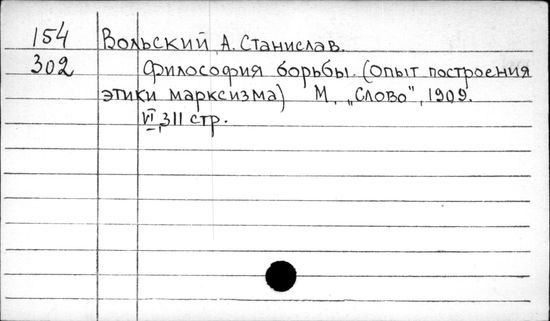 154 Вольский, А. Станислав.
302 Философия борьбы. (Опыт построения
этики марксизма) М. „Слово", 1909.
VI, 311 стр.